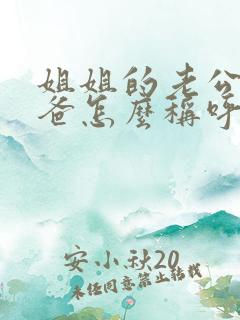 姐姐的老公
爸怎麼稱呼
安小秋20
未经同意禁止转载